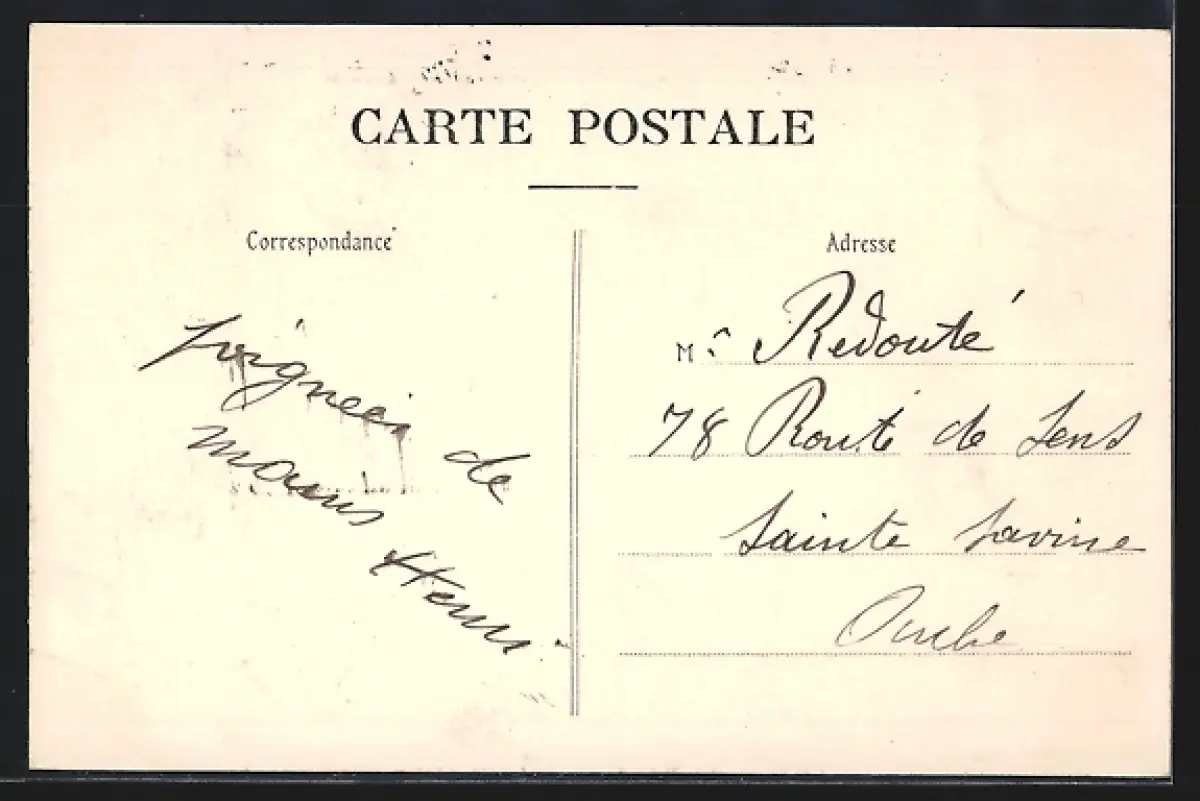 CARTE POSTALE
Correspondance
Poignées de
mains Henri
Adresse
Mr Redouté
78 Route de Sens
Sainte Savine
Aube